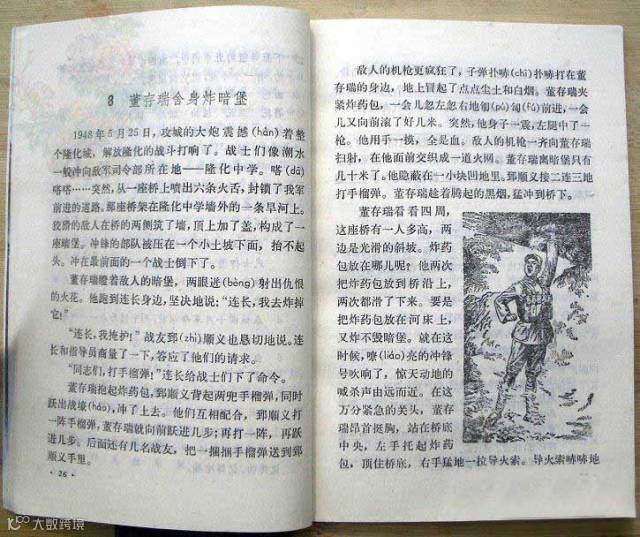 8 董存瑞舍身炸暗堡
1948年5月25日，攻城的大炮震撼(hàn)着整
个隆化城，解放隆化的战斗打响了。战士们像潮水
一般冲向敌军司令部所在地——隆化中学。嗒(dā)
嗒嗒……突然，从一座桥上喷出六条火舌，封锁了我军
前进的道路。那座桥架在隆化中学墙外的一条旱河上。
狡猾的敌人在桥的两侧筑了墙，顶上加了盖，构成了一
座暗堡。冲锋的部队被压在一个小土坡下面，抬不起
头。冲在最前面的一个战士倒下了。
董存瑞瞪着敌人的暗堡，两眼迸(bèng)射出仇恨
的火花。他跑到连长身边，坚决地说：“连长，我去炸掉
它！”
“连长，我掩护！”战友郅(zhì)顺义也恳切地说。连
长和指导员商量了一下，答应了他们的请求。
“同志们，打手榴弹！”连长给战士们下了命令。
董存瑞抱起炸药包，郅顺义背起两兜手榴弹，同时
跃出战壕(háo)，冲了上去。他们互相配合，郅顺义打一
阵手榴弹，董存瑞就向前跃进几步；再打一阵，再跃
进几步。后面还有几名战友，把一捆捆手榴弹送到郅
顺义手里。
·26·
敌人的机枪更疯狂了，子弹扑哧(chī)扑哧打在董
存瑞的身边，地上冒起了点点尘土和白烟。董存瑞夹
紧炸药包，一会儿忽左忽右地匍(pú)匐(fú)前进，一会
儿又向前滚了好几米。突然，他身子一震，左腿中了一
枪。他用手一摸，全是血。敌人的机枪一齐向董存瑞
扫射，在他面前交织成一道火网。董存瑞离暗堡只有
几十米了。他隐蔽在一小块凹地里。郅顺义接二连三地
打手榴弹。董存瑞趁着腾起的黑烟，猛冲到桥下。
董存瑞看看四周，
这座桥有一人多高，两
边是光滑的斜坡。炸药
包放在哪儿呢？他两次
把炸药包放到桥沿上，
两次都滑了下来。要是
把炸药包放在河床上，
又炸不毁暗堡。就在这
时候，嘹(liáo)亮的冲锋
号吹响了，惊天动地的
喊杀声由远而近。在这
万分紧急的关头，董存
瑞昂首挺胸，站在桥底
中央，左手托起炸药
包，顶住桥底，右手猛地一拉导火索。导火索哧哧地
大数跨境